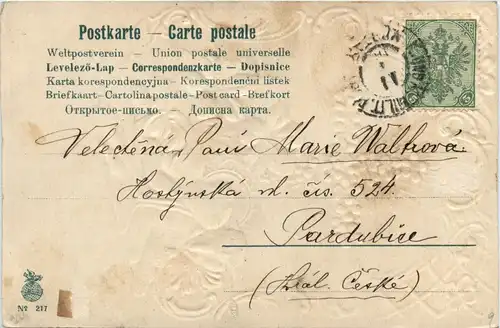 Postkarte — Carte postale
Weltpostverein — Union postale universelle
Levelező-Lap — Correspondenzkarte — Dopisnice
Karta korespondencyjna — Korespondenční lístek
Briefkaart — Cartolina postale — Post card — Brefkort
Открытое письмо. — Дописна карта.
Velectěná Paní Marie Waltrová
Hostýnská ul. čís. 524
Pardubice
(Král. České)
No 217